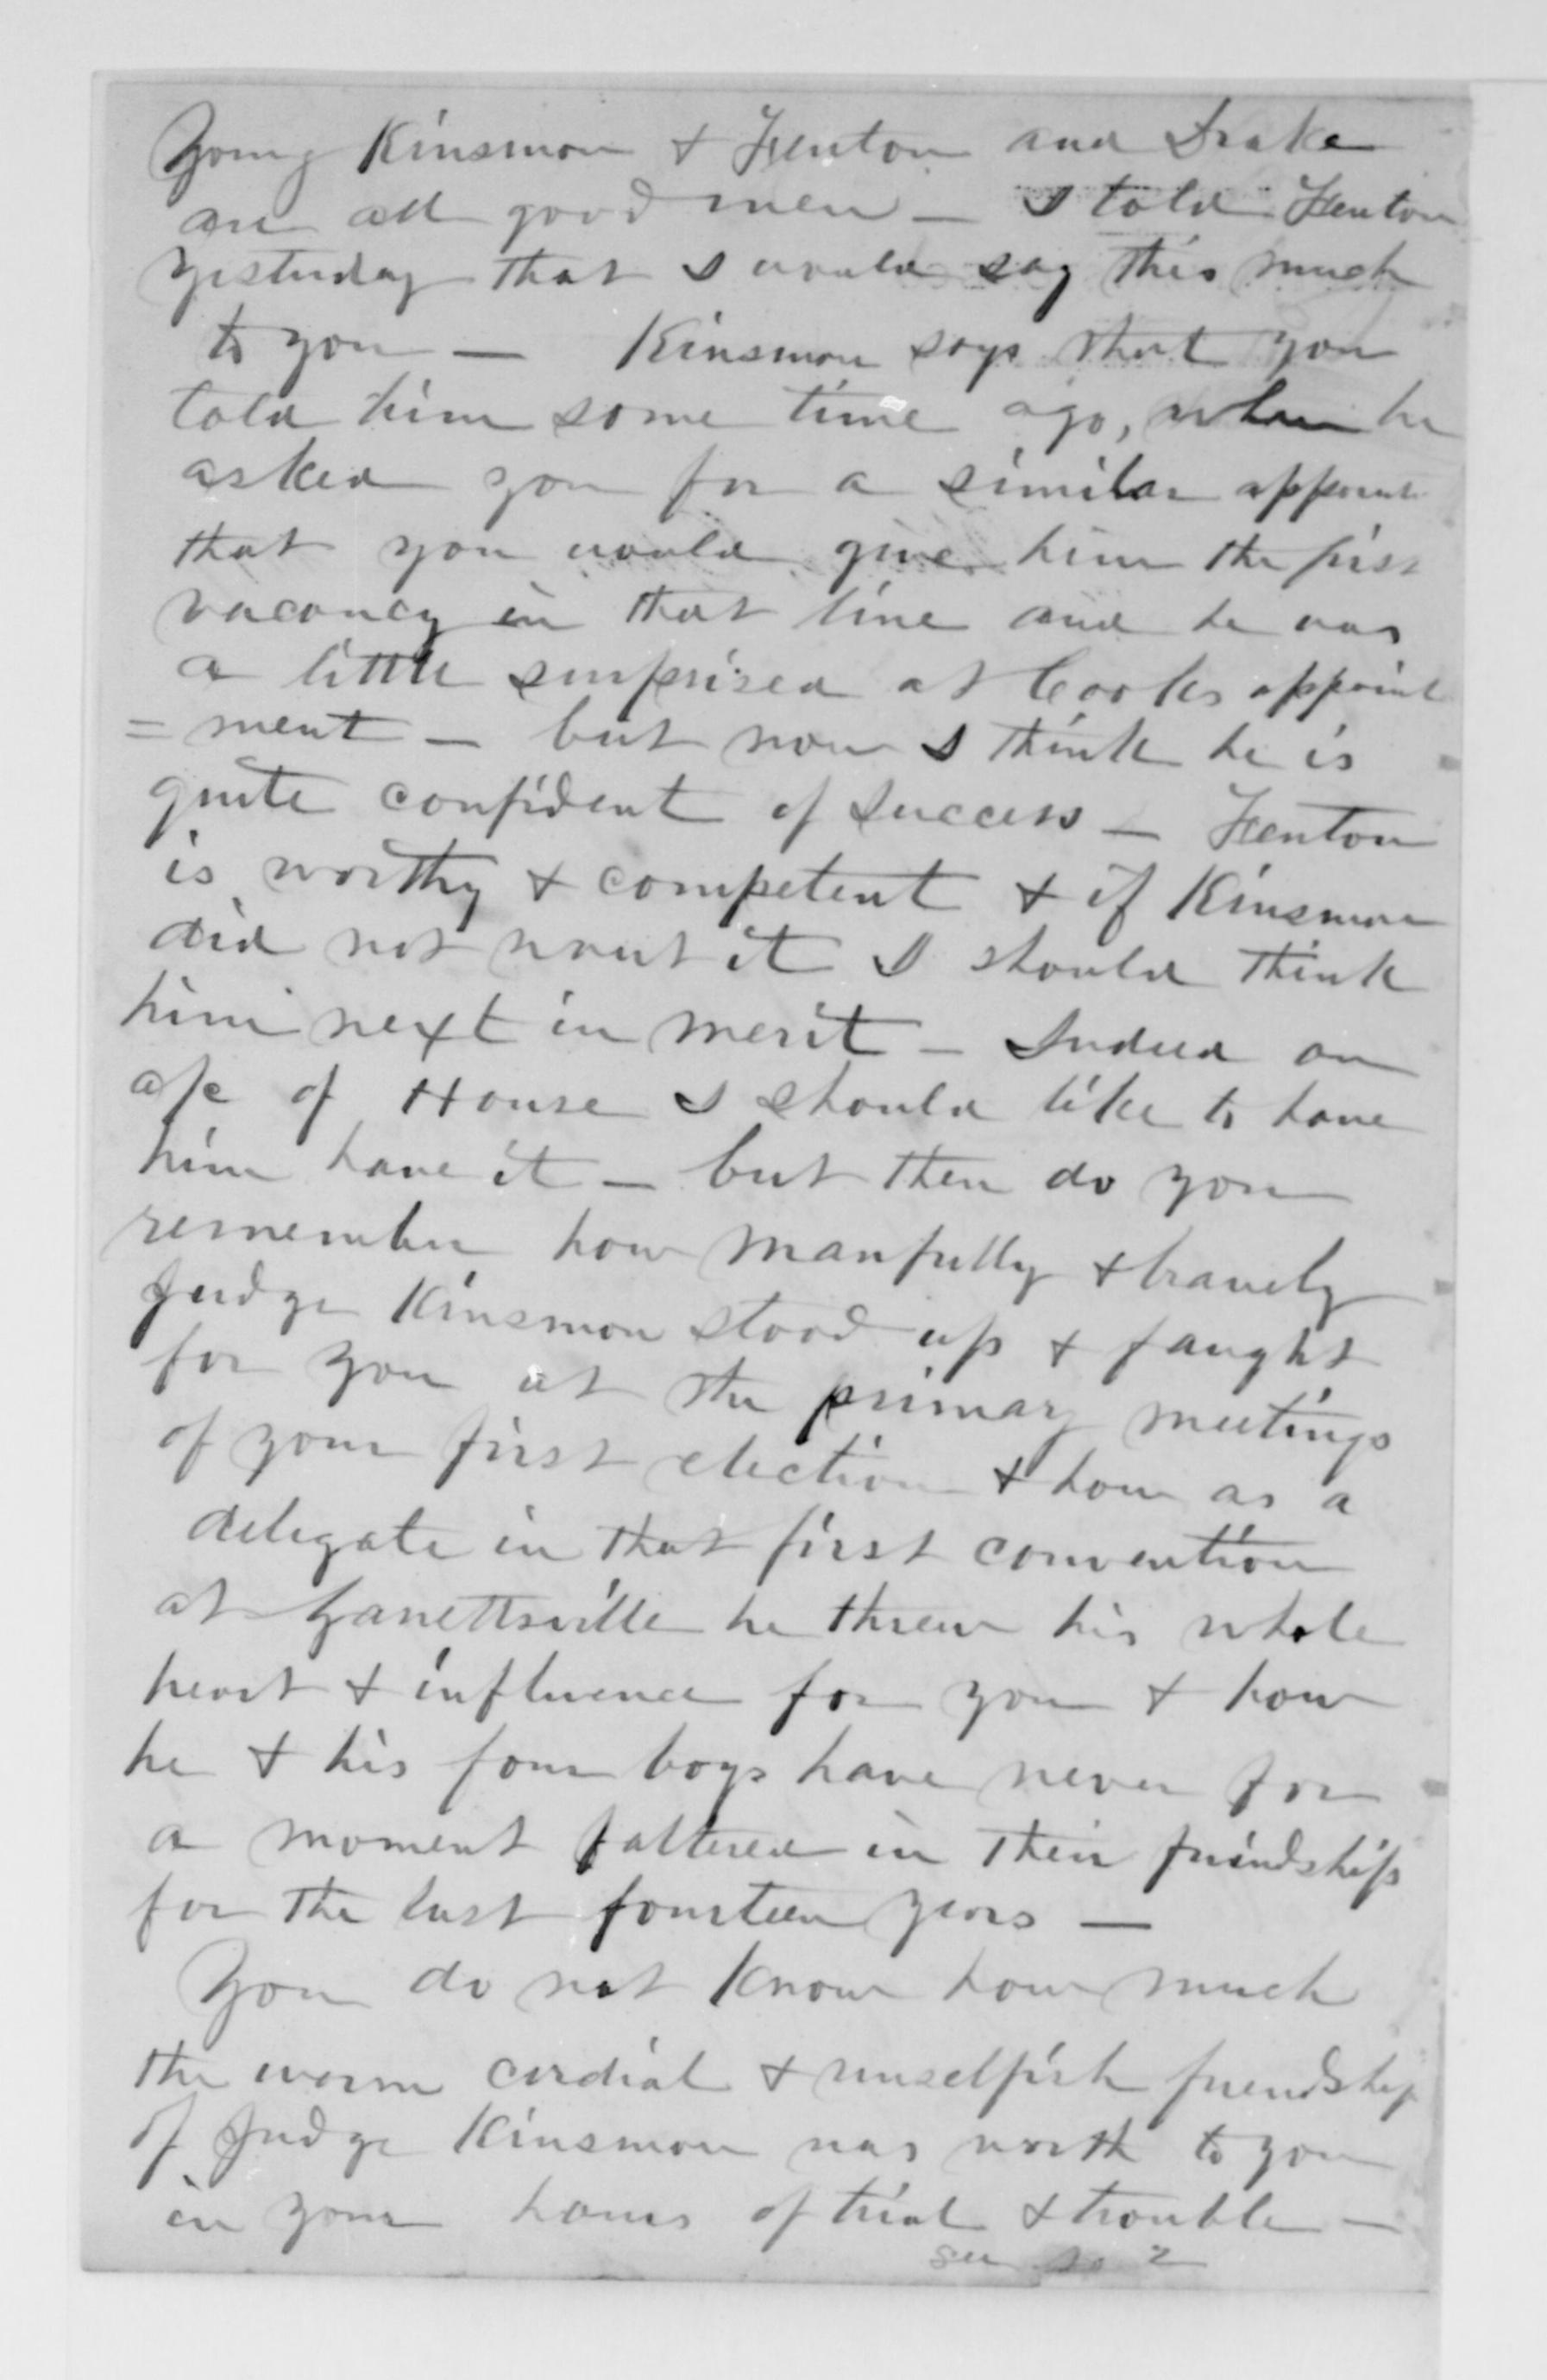 Young Kinsman & Fenton and Drake
are all good men — I told Fenton
yesterday that I would say this much
to you — Kinsman says that you
told him some time ago, when he
asked you for a similar appoint
that you would give him the first
vacancy in that line and he was
a little surprised at Cooks appoint
= ment — but now I think he is
quite confident of success — Fenton
is worthy & competent & if Kinsman
did not want it I should think
him next in merit — Indeed on
a/c of House I should like to have
him have it — but then do you
remember how manfully & bravely
Judge Kinsman stood up & faught
for you at the primary meetings
of your first election & how as a
delegate in that first convention
at Garrettsville he threw his whole
heart & influence for you & how
he & his four boys have never for
a moment faltered in their friendship
for the last fourteen years —
You do not know how much
the warm cordial & unselfish friendship
of Judge Kinsman was worth to you
in your hours of trial & trouble —
see 2